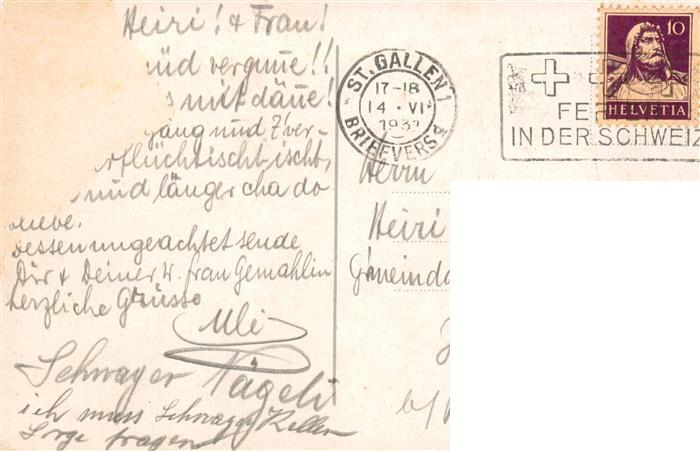 Heiri! & Frau!
üd vergume!!
s mit däne!
gang und z'ver-
rflüchtischt ischt,
und länger cha do
Dessenungeachtet sende
Dir & Deiner w. Frau Gemahlin
herzliche Grüsse
Uli
Schwager Nägeli
ich muss Schwager Keller
Sorge tragen
ST. GALLEN 1
17-18
14 · VI
1931
BRIEFVERS
10
HELVETIA
FE
IN DER SCHWEIZ
Herrn
Heiri
Gmeind
b/